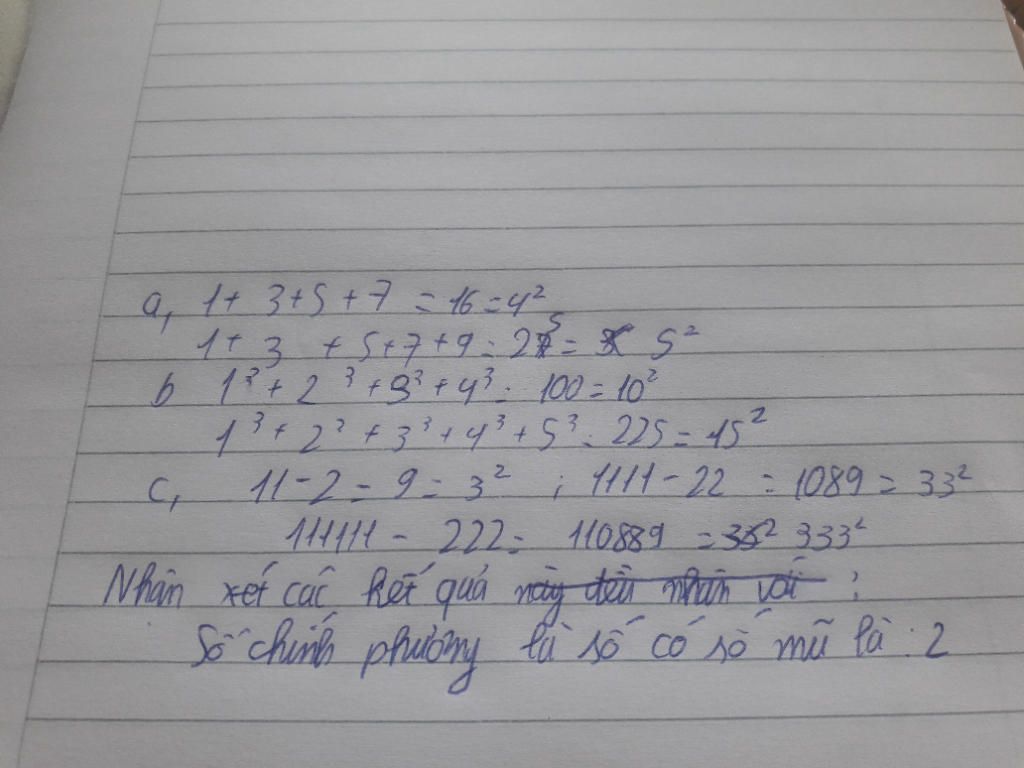 a, 1 + 3 + 5 + 7 = 16 = 4²
1 + 3 + 5 + 7 + 9 = 25 = 5²
b 1³ + 2³ + 3³ + 4³ = 100 = 10²
1³ + 2³ + 3³ + 4³ + 5³ = 225 = 15²
c, 11 - 2 = 9 = 3² ; 1111 - 22 = 1089 = 33²
111111 - 222 = 110889 = 33² 333²
Nhận xét các kết quả này đều nhân với :
Số chính phương là số có số mũ là : 2